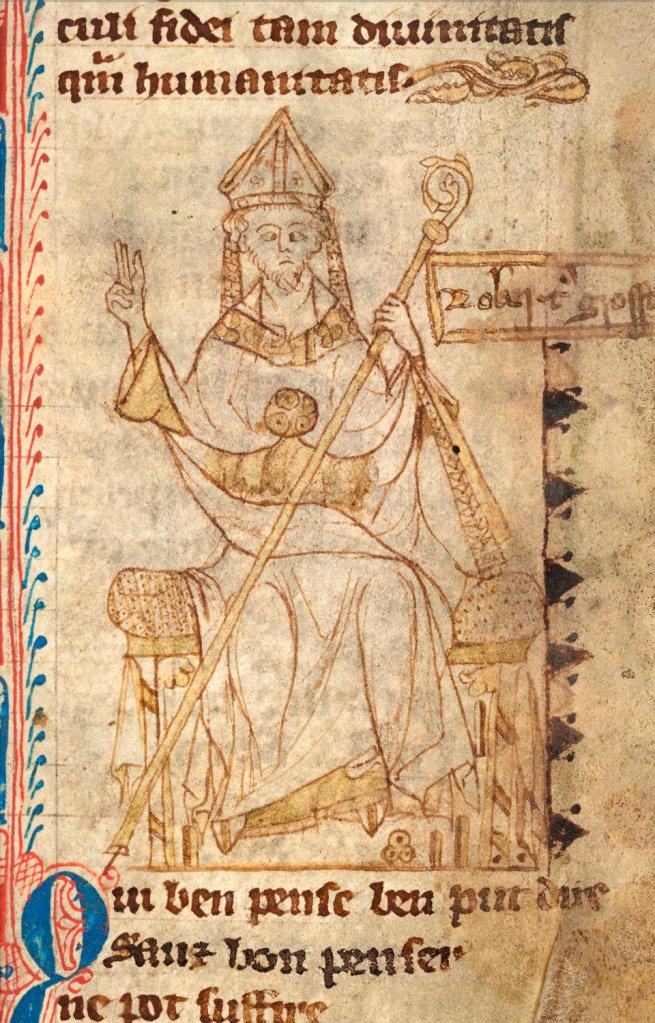 culi fidei tam diuinitatis
qm̄ humanitatis.
Robert⁹ grosst
Qui ben pense ben put dire
Sanz bon penser
ne pot suffire